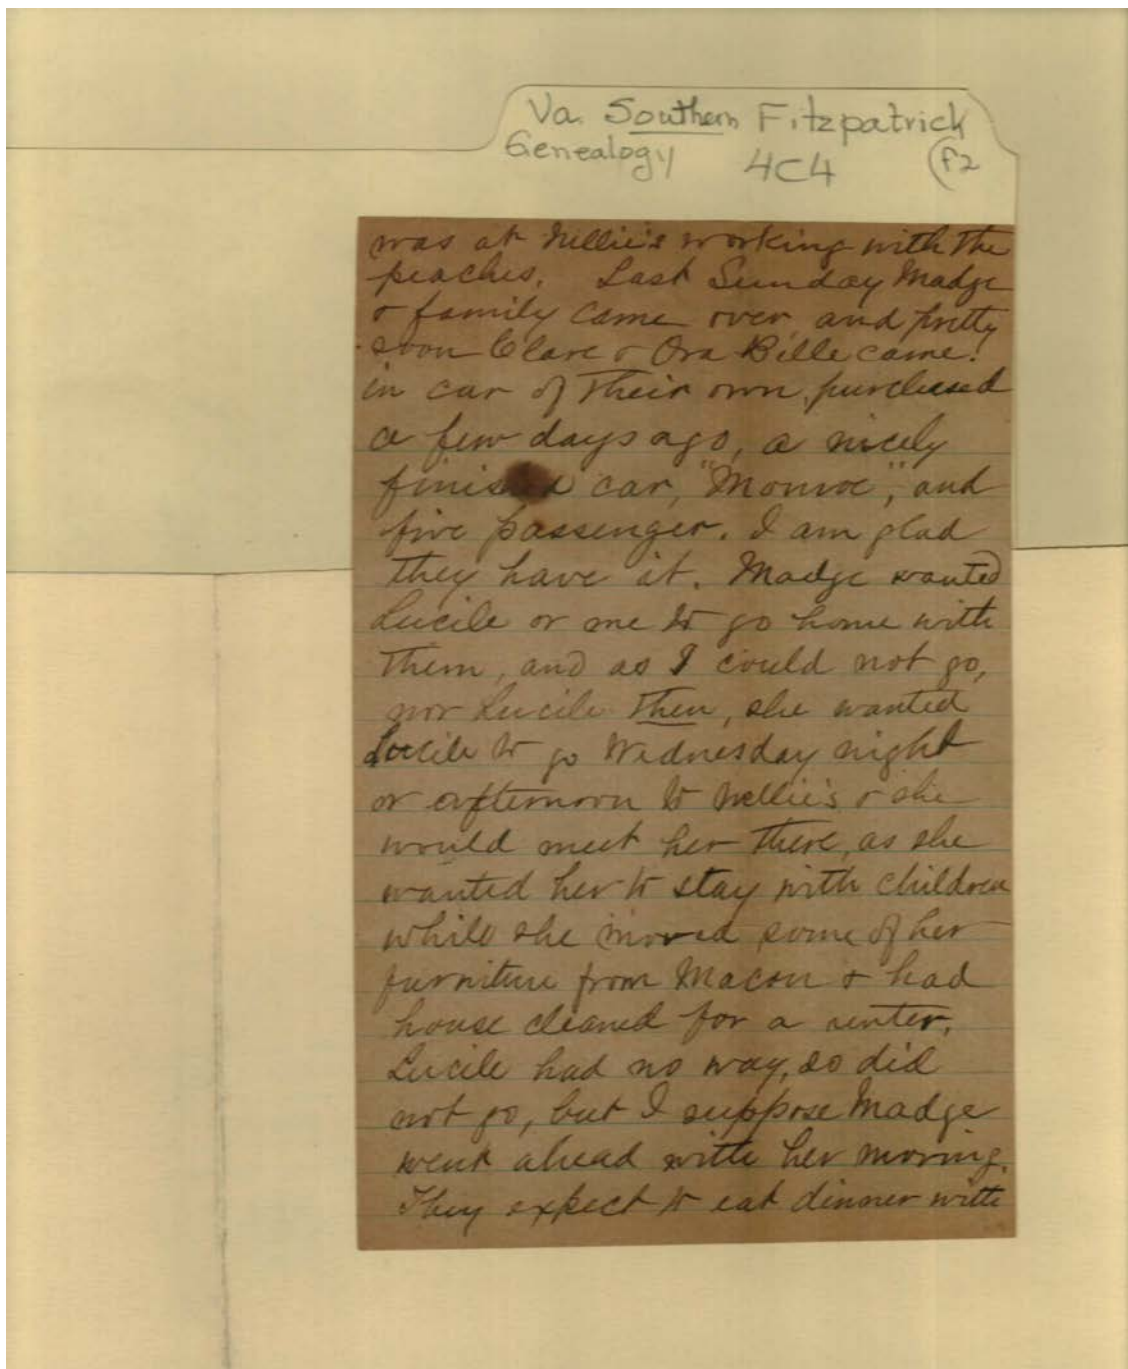 Va. Southern Fitzpatrick
Genealogy 4C4 F2
was at Nellie's working with the
peaches. Last Sunday Madge
& family came over, and pretty
soon Clare & Ora Bille came.
in car of their own, purchased
a few days ago, a nicely
finished car, "Monroe", and
five passenger. I am glad
they have it. Madge wanted
Lucile or me to go home with
them, and as I could not go,
nor Lucile then, she wanted
Lucile to go Wednesday night
or afternoon to Nellie's & she
would meet her there, as she
wanted her to stay with children
while she moved some of her
furniture from Macon & had
house cleaned for a renter.
Lucile had no way, so did
not go, but I suppose Madge
went ahead with her moving.
They expect to eat dinner with